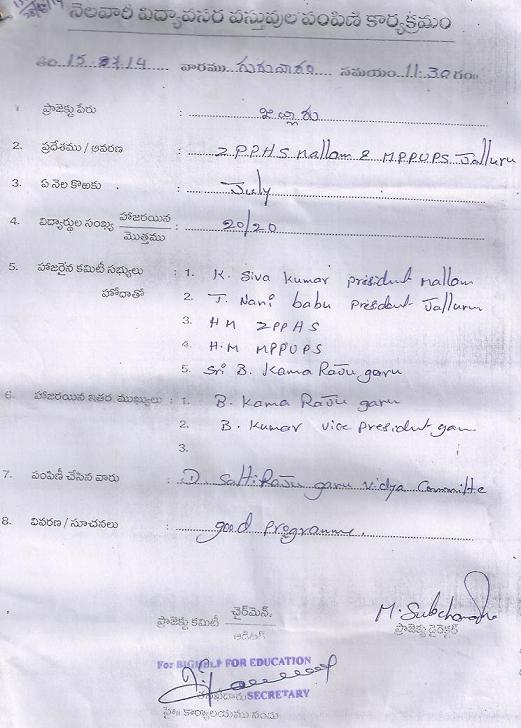 నెలవారీ విద్యావసర వస్తువుల పంపిణీ కార్యక్రమం
తేది 15.07.14 వారము గురువారం సమయం 11.30 గం॥
1. ప్రాజెక్టు పేరు : జల్లూరు
2. ప్రదేశము / ఆవరణ : ZPPHS Mallam & MPPUPS Jalluru
3. ఏ నెల కొఱకు : July
4. విద్యార్థుల సంఖ్య హాజరయిన / మొత్తము : 20/20
5. హాజరైన కమిటీ సభ్యులు : 1. K. Siva Kumar president mallam
హోదాతో 2. J. Nani babu president Jalluru
3. HM ZPPHS
4. H.M MPPUPS
5. Sri B. Kama Raju garu
6. హాజరయిన ఇతర ముఖ్యులు : 1. B. Kama Raju garu
2. B. Kumar vice president garu
3.
7. పంపిణీ చేసిన వారు : D. SattiRaju garu vidya Committe
8. వివరణ / సూచనలు : good programme.
ప్రాజెక్టు కమిటీ ఛైర్మెన్.
ఆడిటర్
ప్రాజెక్టు డైరెక్టర్
FOR EDUCATION
SECRETARY
హై॥ కార్యాలయము నందు